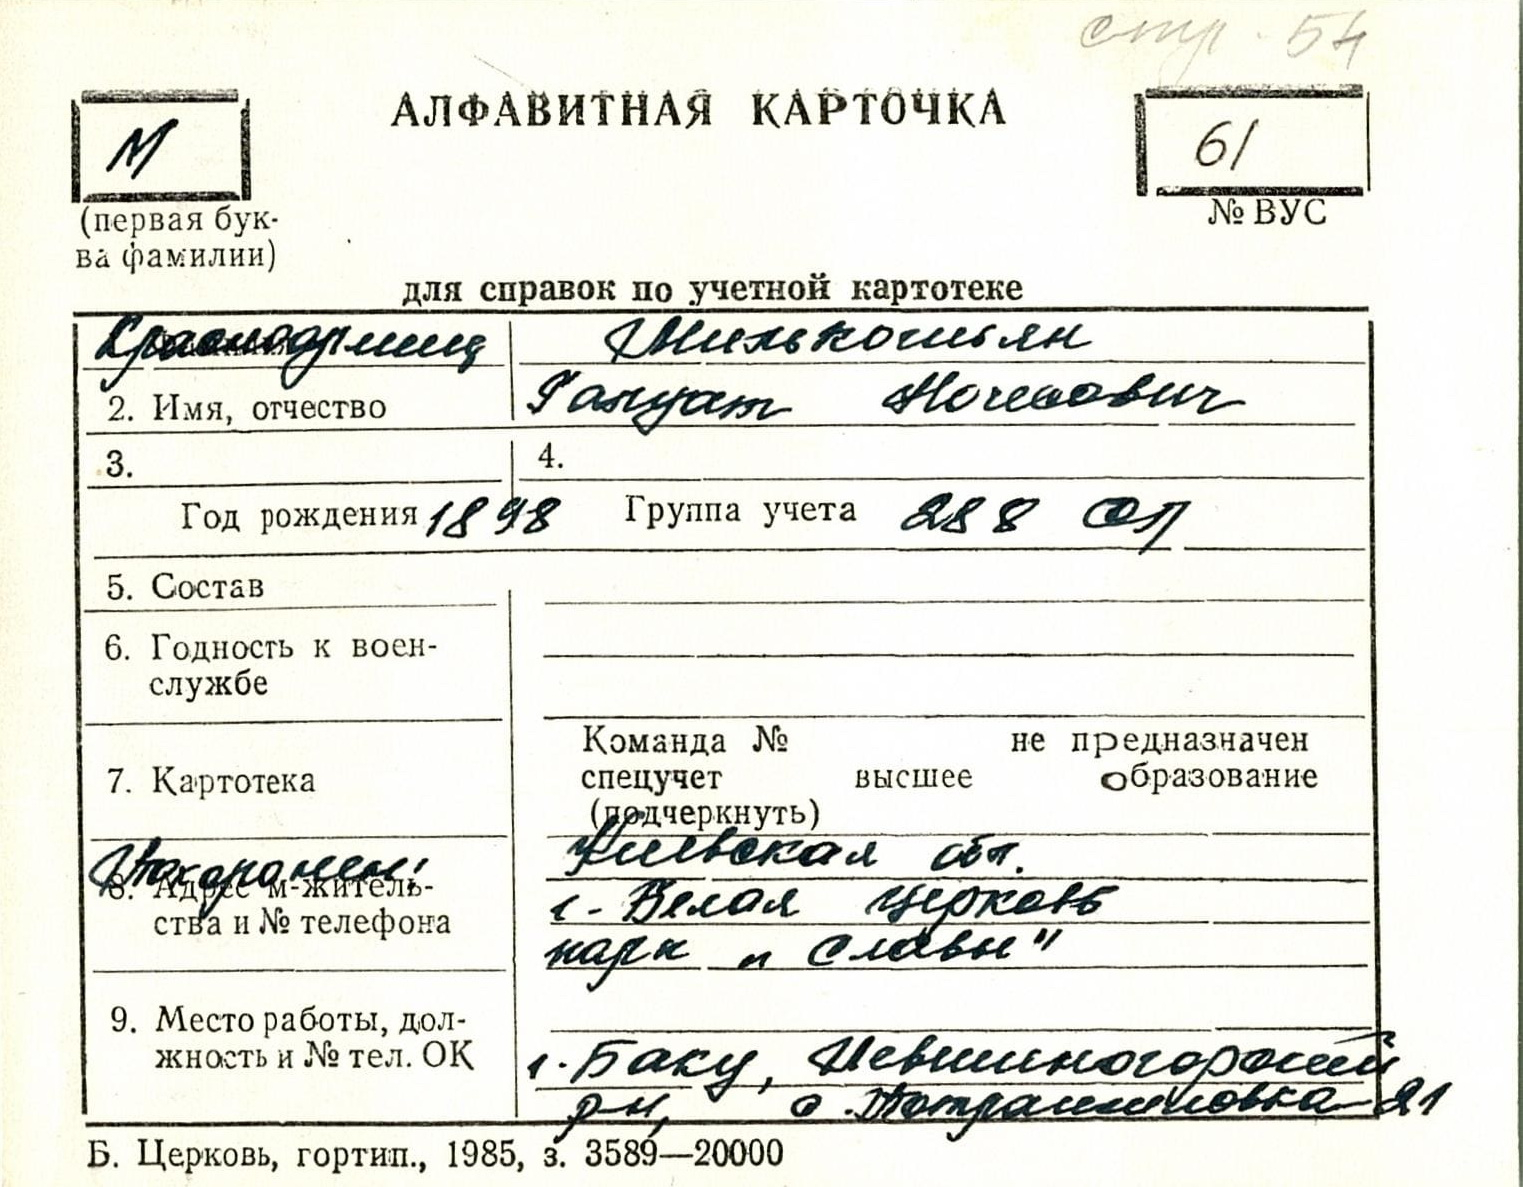 стр. 54
М
АЛФАВИТНАЯ КАРТОЧКА
61
(первая бук-
ва фамилии)
№ ВУС
для справок по учетной картотеке
Красноармеец
2. Имя, отчество
3.
4.
Год рождения 1898 Группа учета 288 сп
5. Состав
6. Годность к воен-
службе
7. Картотека
Команда № не предназначен
спецучет высшее образование
(подчеркнуть)
Похоронен:
8. Адрес м-житель-
ства и № телефона
Киевская обл.
г. Белая Церковь
парк "Славы"
9. Место работы, дол-
жность и № тел. ОК
г. Баку,
рн, с. 21
Б. Церковь, гортип., 1985, з. 3589—20000